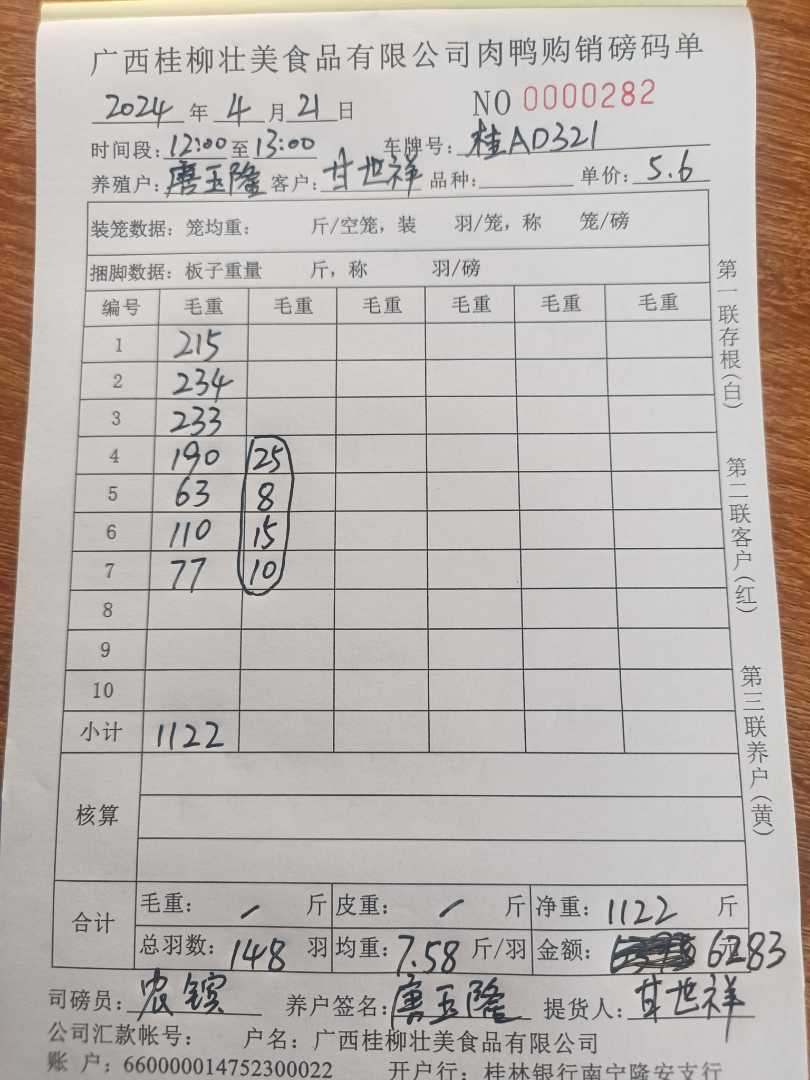 广西桂柳壮美食品有限公司肉鸭购销磅码单
2024 年 4 月 21 日 NO 0000282
时间段: 12:00 至 13:00 车牌号: 桂AD321
养殖户: 唐玉隆 客户: 甘世祥 品种: 单价: 5.6
装笼数据: 笼均重: 斤/空笼, 装 羽/笼, 称 笼/磅
捆脚数据: 板子重量 斤, 称 羽/磅
编号 毛重 毛重 毛重 毛重 毛重 毛重
1 215
2 234
3 233
4 190 25
5 63 8
6 110 15
7 77 10
8
9
10
小计 1122
核算
合计 毛重: / 斤 皮重: / 斤 净重: 1122 斤
总羽数: 148 羽 均重: 7.58 斤/羽 金额: 6283
司磅员: 农镔 养户签名: 唐玉隆 提货人: 甘世祥
公司汇款帐号: 户名: 广西桂柳壮美食品有限公司
账 户: 660000014752300022 开户行: 桂林银行南宁隆安支行
第一联存根(白)
第二联客户(红)
第三联养户(黄)